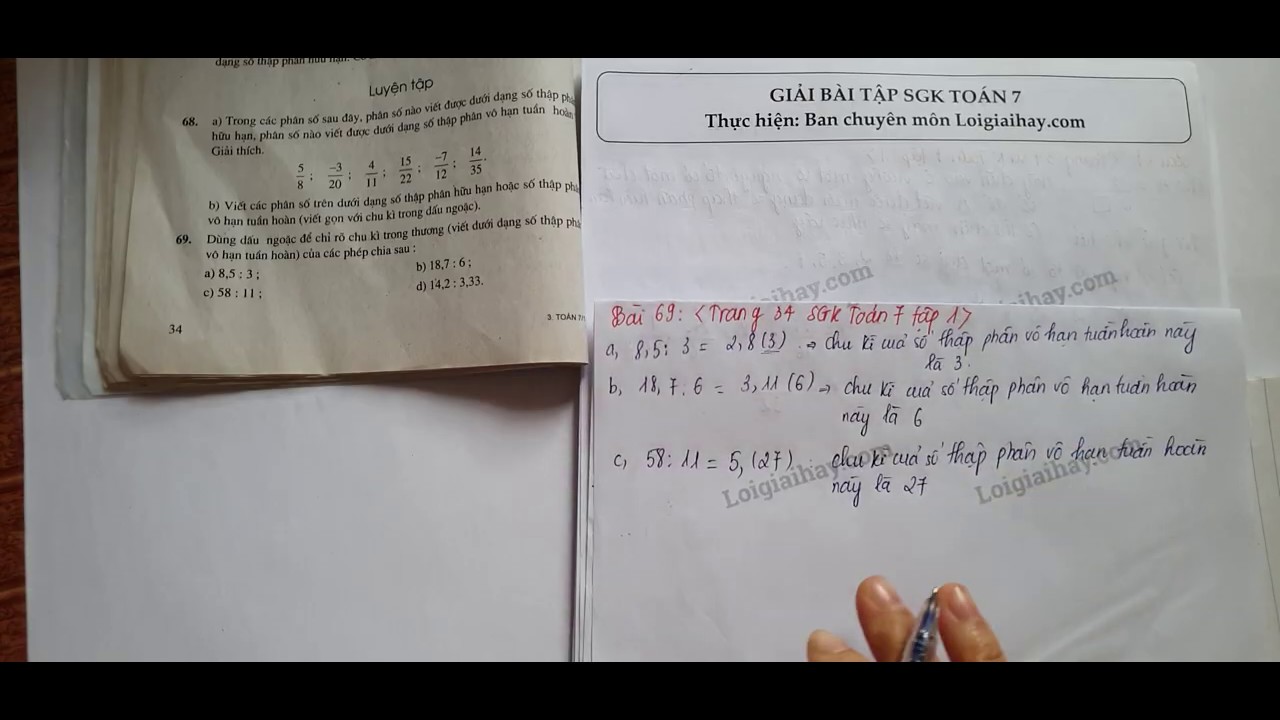 dạng số thập phân hữu hạn.
Luyện tập
68. a) Trong các phân số sau đây, phân số nào viết được dưới dạng số thập phâ
hữu hạn, phân số nào viết được dưới dạng số thập phân vô hạn tuần hoàn
Giải thích.
5/8 ; -3/20 ; 4/11 ; 15/22 ; -7/12 ; 14/35.
b) Viết các phân số trên dưới dạng số thập phân hữu hạn hoặc số thập phâ
vô hạn tuần hoàn (viết gọn với chu kì trong dấu ngoặc).
69. Dùng dấu ngoặc để chỉ rõ chu kì trong thương (viết dưới dạng số thập phâ
vô hạn tuần hoàn) của các phép chia sau :
a) 8,5 : 3 ; b) 18,7 : 6 ;
c) 58 : 11 ; d) 14,2 : 3,33.
34
3. TOÁN 7/
GIẢI BÀI TẬP SGK TOÁN 7
Thực hiện: Ban chuyên môn Loigiaihay.com
Loigiaihay.com
Bài 69: <Trang 34 SGK Toán 7 tập 1>
a, 8,5 : 3 = 2,8(3) → chu kì cuả số thập phân vô hạn tuần hoàn này
là 3.
b, 18,7 : 6 = 3,11(6) → chu kì cuả số thập phân vô hạn tuần hoàn
này là 6
c, 58 : 11 = 5,(27) chu kì cuả số thập phân vô hạn tuần hoàn
này là 27
Loigiaihay.com Loigiaihay.com